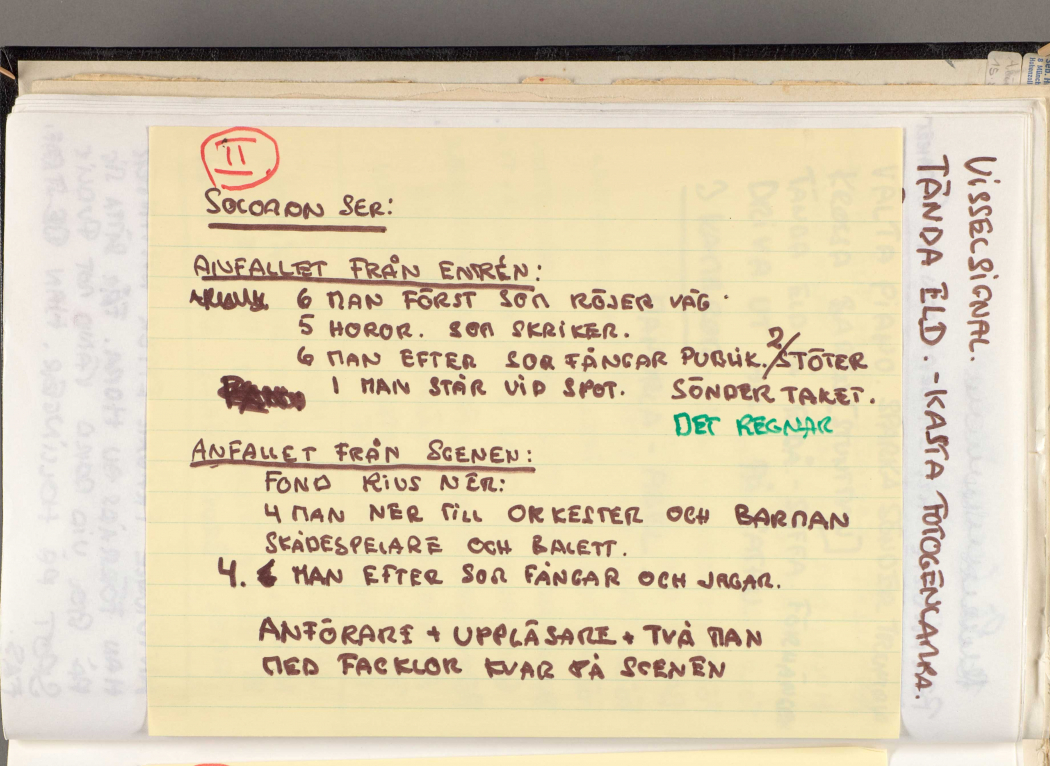 11
SOCORON SER:
ANFALLET FRÅN ENTRÉN:
6 MAN FÖRST SOM RÖJER VÄG.
5 HOROR. SOM SKRIKER.
6 MAN EFTER SOM FÅNGAR PUBLIK. 2/STÖTER
1 MAN STÅR VID SPOT. SÖNDER TAKET.
DET REGNAR
ANFALLET FRÅN SCENEN:
FOND RIVS NER:
4 MAN NER TILL ORKESTER OCH BARMAN
SKÅDESPELARE OCH BALETT.
4. MAN EFTER SOM FÅNGAR OCH JAGAR.
ANFÖRARE + UPPLÄSARE + TVÅ MAN
MED FACKLOR KVAR PÅ SCENEN
VISSELSIGNAL.
TÄNDA ELD. - KASTA FOTOGENLAMPA.